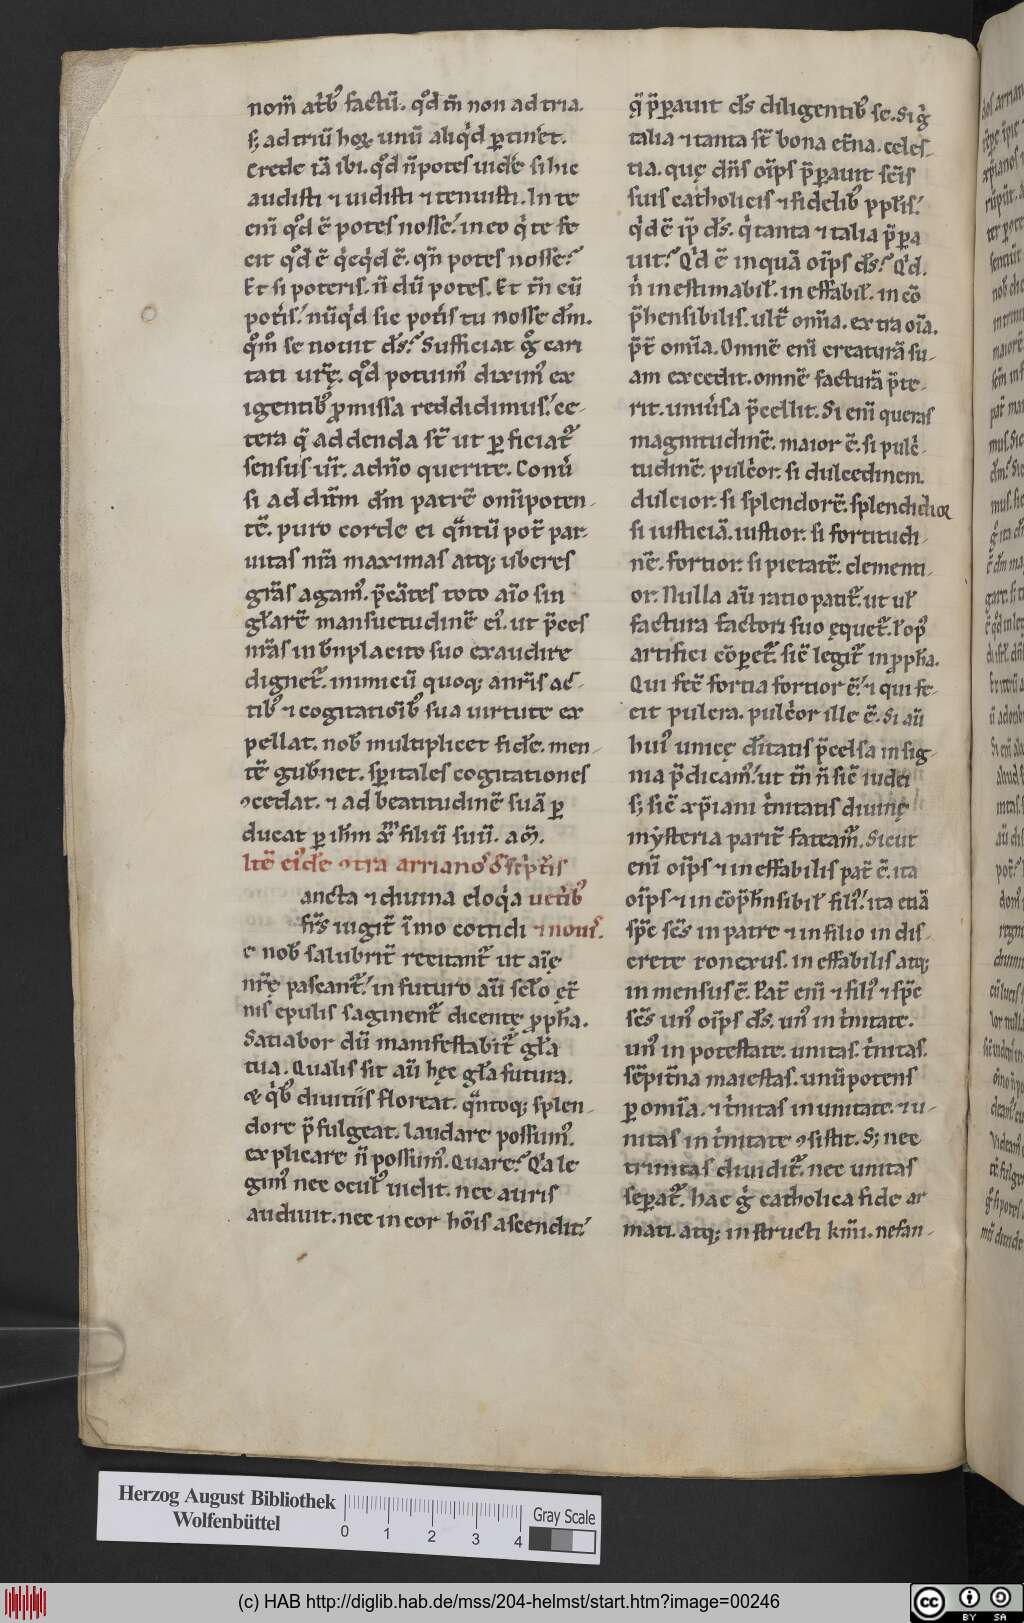 nom̄ at̄bꝰ factū. qd̓ tn̄ non ad tria.
s; ad triū hoꝝ unū aliqͥd ꝑtinet.
Crede iā ibi. qd̓ n̄ potes uidē si hic
audisti ⁊ uidisti ⁊ tenuisti. In te
eni qd̓ ē potes nosse. in eo qͥ te fe
cit qd̓ ē qͥcqͥd ē. qn̄ potes nosse?
Et si poteris. n̄ dū potes. Et tn̄ cū
potis̄. nūqͥd sic potis̄ tu nosse dm̄.
qm̊ se nouit ds̄? Sufficiat g̊ cari
tati ur̄ę. qd̓ potuimꝰ diximꝰ ex
igentibꝰ ꝓmissa reddidimus. ce-
tera q̄ addenda st̄ ut ꝑficiat᷑
sensus ur̄. a dn̄o querite. Conū
si ad dn̄m dm̄ patrē omīpoten-
tē. puro corde ei qn̄tū pot̄ par-
uitas nr̄a maximas atq; uberes
grās agamꝰ. p̄cātes toto aīo sin
gl̄arē mansuetudinē eiꝰ. ut p̄ces
nr̄as in bn̄placito suo exaudire
dignet᷑. inimicū quoq; a nr̄is ac-
tibꝰ ⁊ cogitatioībꝰ sua uirtute ex
pellat. nob̄ multiplicet fidē. men-
tē gub̄net. sp̄itales cogitationes
ꝯcedat. ⁊ ad beatitudinē suā ꝑ
ducat ꝑ ih̄m xp̄m filiū suū. am̄.
Itē eiꝰdē ꝯtra arrianos de sc̄pt̄is
ancta ⁊ diuina eloqͥa uet̄ibꝰ
frs̄ iugit̄ īmo cottidi ⁊ nouiꝰ.
e nob̄ salubrit̄ recitant᷑ ut aīę
nr̄ę pascant᷑. in futuro aū sc̄lo ęt̄
nis epulis saginent᷑ dicente ꝓph̄a.
Satiabor dū manifestabit᷑ gl̄a
tua. Qualis sit aū hęc gl̄a futura.
& qͥbꝰ diuitiis floreat. qn̄toq; splen-
dore p̄fulgeat. laudare possumꝰ.
explicare n̄ possumꝰ. Quare? Qͥa le
gimꝰ nec oculꝰ uidit. nec auris
audiuit. nec in cor hoīs ascendit.
q̄ p̄parauit ds̄ diligentibꝰ se. Si g̊
talia ⁊ tanta st̄ bona et̄na. celes-
tia. quę dn̄s oīps p̄parauit sc̄is
suis catholicis ⁊ fidelibꝰ pplis̄.
qͥd ē ip̄ ds̄. qͥ tanta ⁊ talia p̄pa
uit? Qͥd ē inquā oīps ds̄? Qͥd.
n̄ inestimabil̄. ineffabil̄. incō
p̄hensibilis. ult̄ omīa. extra oīa.
p̄t̄ omīa. Omnē eni creaturā su-
am excedit. omnē facturā p̄te-
rit. uniūsa p̄cellit. Si eni queras
magnitudinē. maior ē. si pulc̄-
tudinē. pulc̄or. si dulcedinem.
dulcior. si splendorē. splendidior
si iusticiā. iustior. si fortitudi-
nē. fortior. si pietatē. clementi-
or. Nulla aū ratio patit᷑. ut ul̄
factura factori suo ęquet᷑. l̄ opꝰ
artifici cōparet᷑. sic legit᷑ in ꝓph̄a.
Qui fec̄ fortia fortior ē. ⁊ qui fe-
cit pulcra. pulc̄or ille ē. Si aū
huiꝰ unicę dītatis p̄celsa insig-
nia p̄dicamꝰ. ut tn̄ n̄ sic iudei
s; sic xp̄iani t̄nitatis diuinę
mysteria parit̄ fateam᷑. Sicut
eni oīps ⁊ ineffabilis pat̄ ē. ita
oīps ⁊ incōp̄hn̄sibil̄ filiꝰ. ita etiā
sp̄c sc̄s in patre ⁊ in filio indis-
crete conexus. ineffabilis atq;
inmensus ē. Pat̄ eni ⁊ filiꝰ ⁊ sp̄c
sc̄s unꝰ oīps ds̄. unꝰ in t̄nitate.
unꝰ in potestate. unitas. t̄nitas.
sēpit̄na maiestas. unū potens
ꝑ omīa. ⁊ t̄nitas in unitate. ⁊ u-
nitas in t̄nitate ꝯsistit. S; nec
trinitas diuidit᷑. nec unitas
separat᷑. hac g̊ catholica fide ar
mati. atq; instructi km̄i. nefan-
Herzog August Bibliothek
Wolfenbüttel
0 1 2 3 4
Gray Scale
(c) HAB http://diglib.hab.de/mss/204-helmst/start.htm?image=00246
cc BY SA